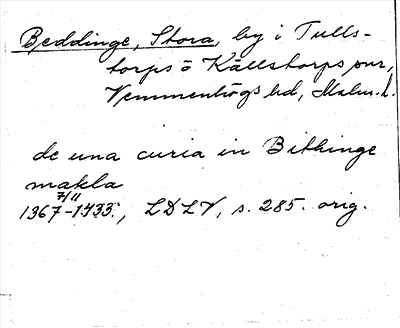 Beddinge, Stora, by i Tulls-
torps o Källstorps snr,
Vemmenhögs hd, Malm. l.
de una curia in Bithinge
makla
7/11
1367-1433., LDLV, s. 285. orig.